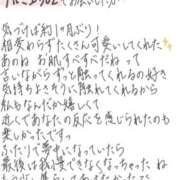 気づけば約1ヶ月ぶり!
相変わらずたくさん可愛いしてくれた
あのね お肌すべすべだねって
言いながらずっと触ってくれるの好き
気持ちよさそうに触れてくれるから
私もなんだか嬉しくて
いつもあなたの反応を感じられたのも
楽しかったです
ふたりで夢中になっていたら
最後は我慢できなくなっちゃったね